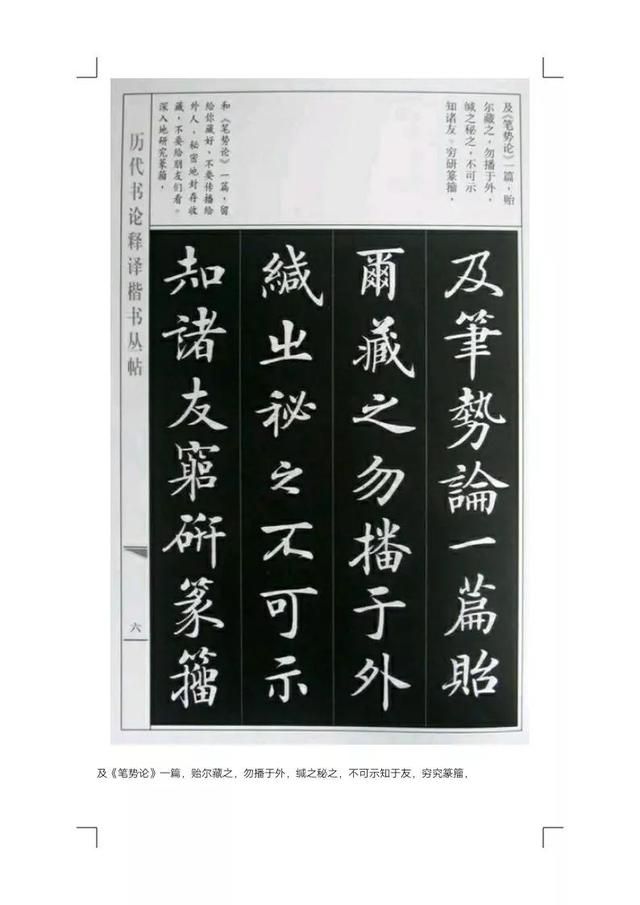 及《笔势论》一篇,贻
尔藏之,勿播于外,
缄之秘之,不可示
知诸友。穷研篆籀,
和《笔势论》一篇,留
给你藏好、不要传播给
外人,秘密地封存收
藏,不要给朋友们看。
深入地研究篆籀,
及筆勢論一篇貽
爾藏之勿播于外
緘之秘之不可示
知諸友窮硏篆籀
历代书论释译楷书丛帖
六
及《笔势论》一篇,贻尔藏之,勿播于外,缄之秘之,不可示知于友,穷究篆籀,